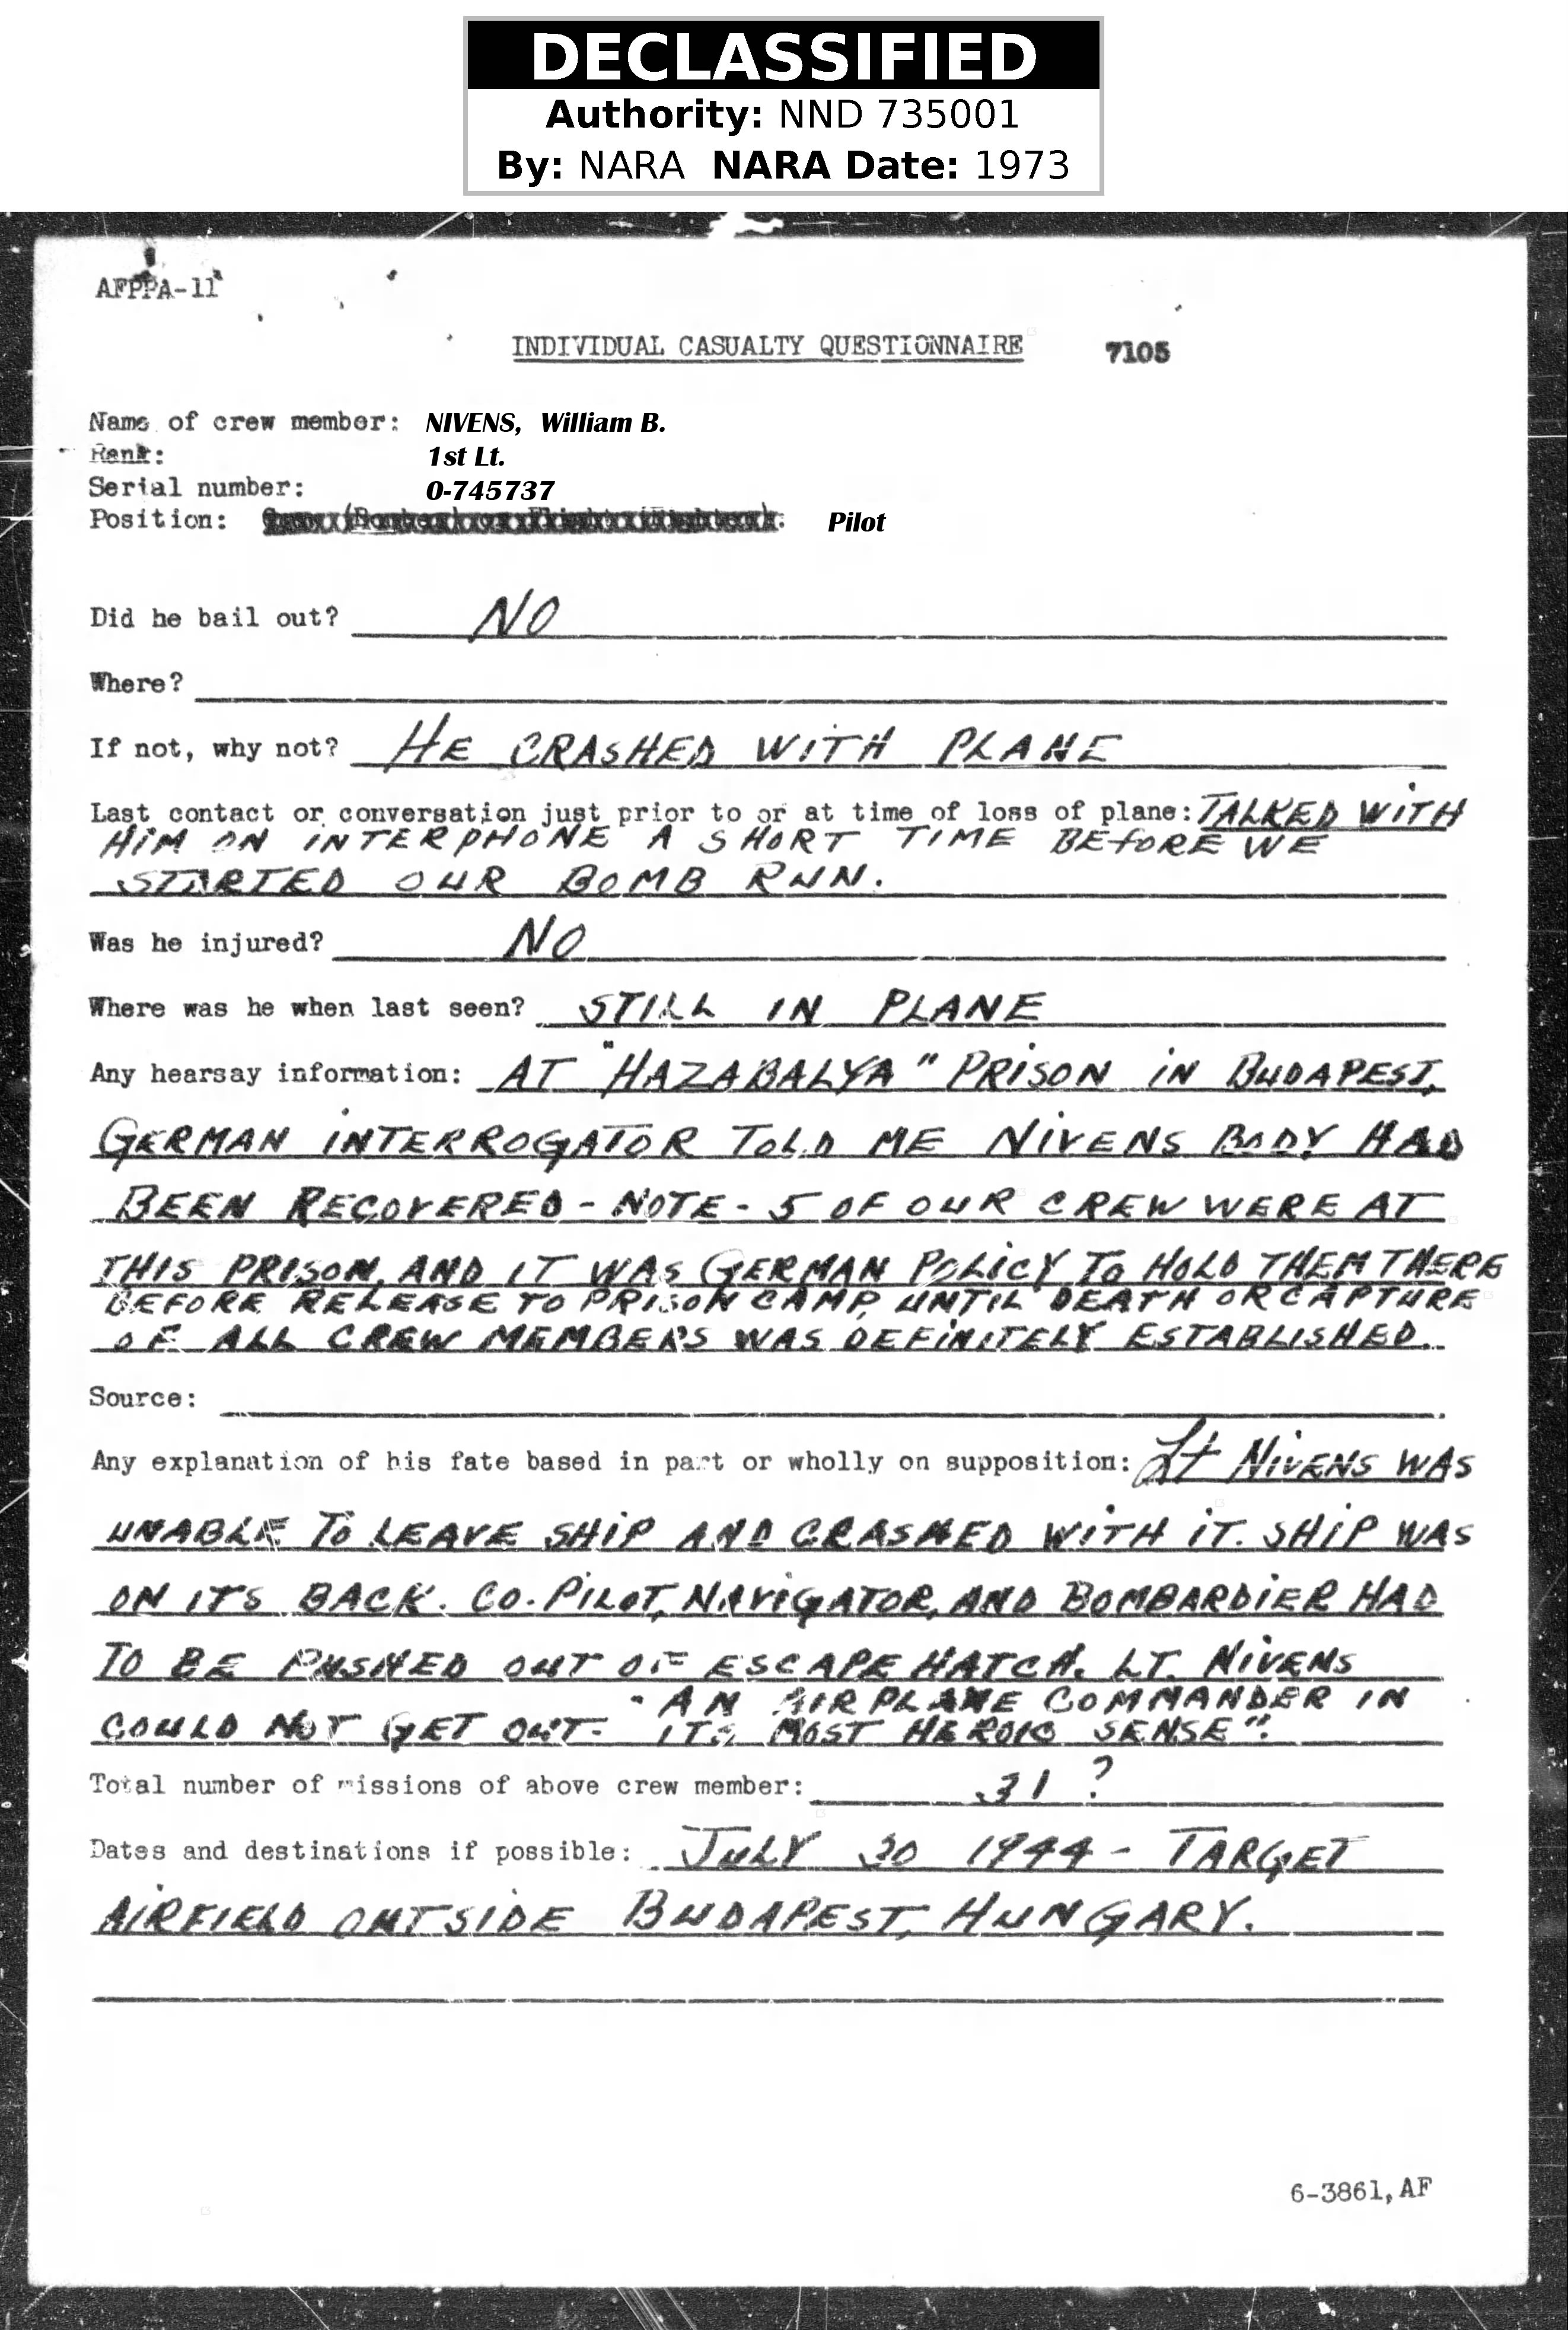 DECLASSIFIED
Authority: NND 735001
By: NARA NARA Date: 1973
AFPPA-11
INDIVIDUAL CASUALTY QUESTIONNAIRE 7105
Name of crew member: NIVENS, William B.
Rank: 1st Lt.
Serial number: 0-745737
Position: Pilot
Did he bail out? NO
Where?
If not, why not? HE CRASHED WITH PLANE
Last contact or conversation just prior to or at time of loss of plane: TALKED WITH
HIM ON INTERPHONE A SHORT TIME BEFORE WE
STARTED OUR BOMB RUN.
Was he injured? NO
Where was he when last seen? STILL IN PLANE
Any hearsay information: AT "HAZABALYA" PRISON IN BUDAPEST,
GERMAN INTERROGATOR TOLD ME NIVENS BODY HAD
BEEN RECOVERED - NOTE - 5 OF OUR CREW WERE AT
THIS PRISON, AND IT WAS GERMAN POLICY TO HOLD THEM THERE
BEFORE RELEASE TO PRISON CAMP, UNTIL DEATH OR CAPTURE
OF ALL CREW MEMBERS WAS DEFINITELY ESTABLISHED.
Source:
Any explanation of his fate based in part or wholly on supposition: Lt NIVENS WAS
UNABLE TO LEAVE SHIP AND CRASHED WITH IT. SHIP WAS
ON ITS BACK. CO-PILOT, NAVIGATOR, AND BOMBARDIER HAD
TO BE PUSHED OUT OF ESCAPE HATCH. LT. NIVENS
COULD NOT GET OUT- "AN AIRPLANE COMMANDER IN
ITS MOST HEROIC SENSE".
Total number of missions of above crew member: 31 ?
Dates and destinations if possible: JULY 30 1944 - TARGET
AIRFIELD OUTSIDE BUDAPEST, HUNGARY.
6-3861, AF